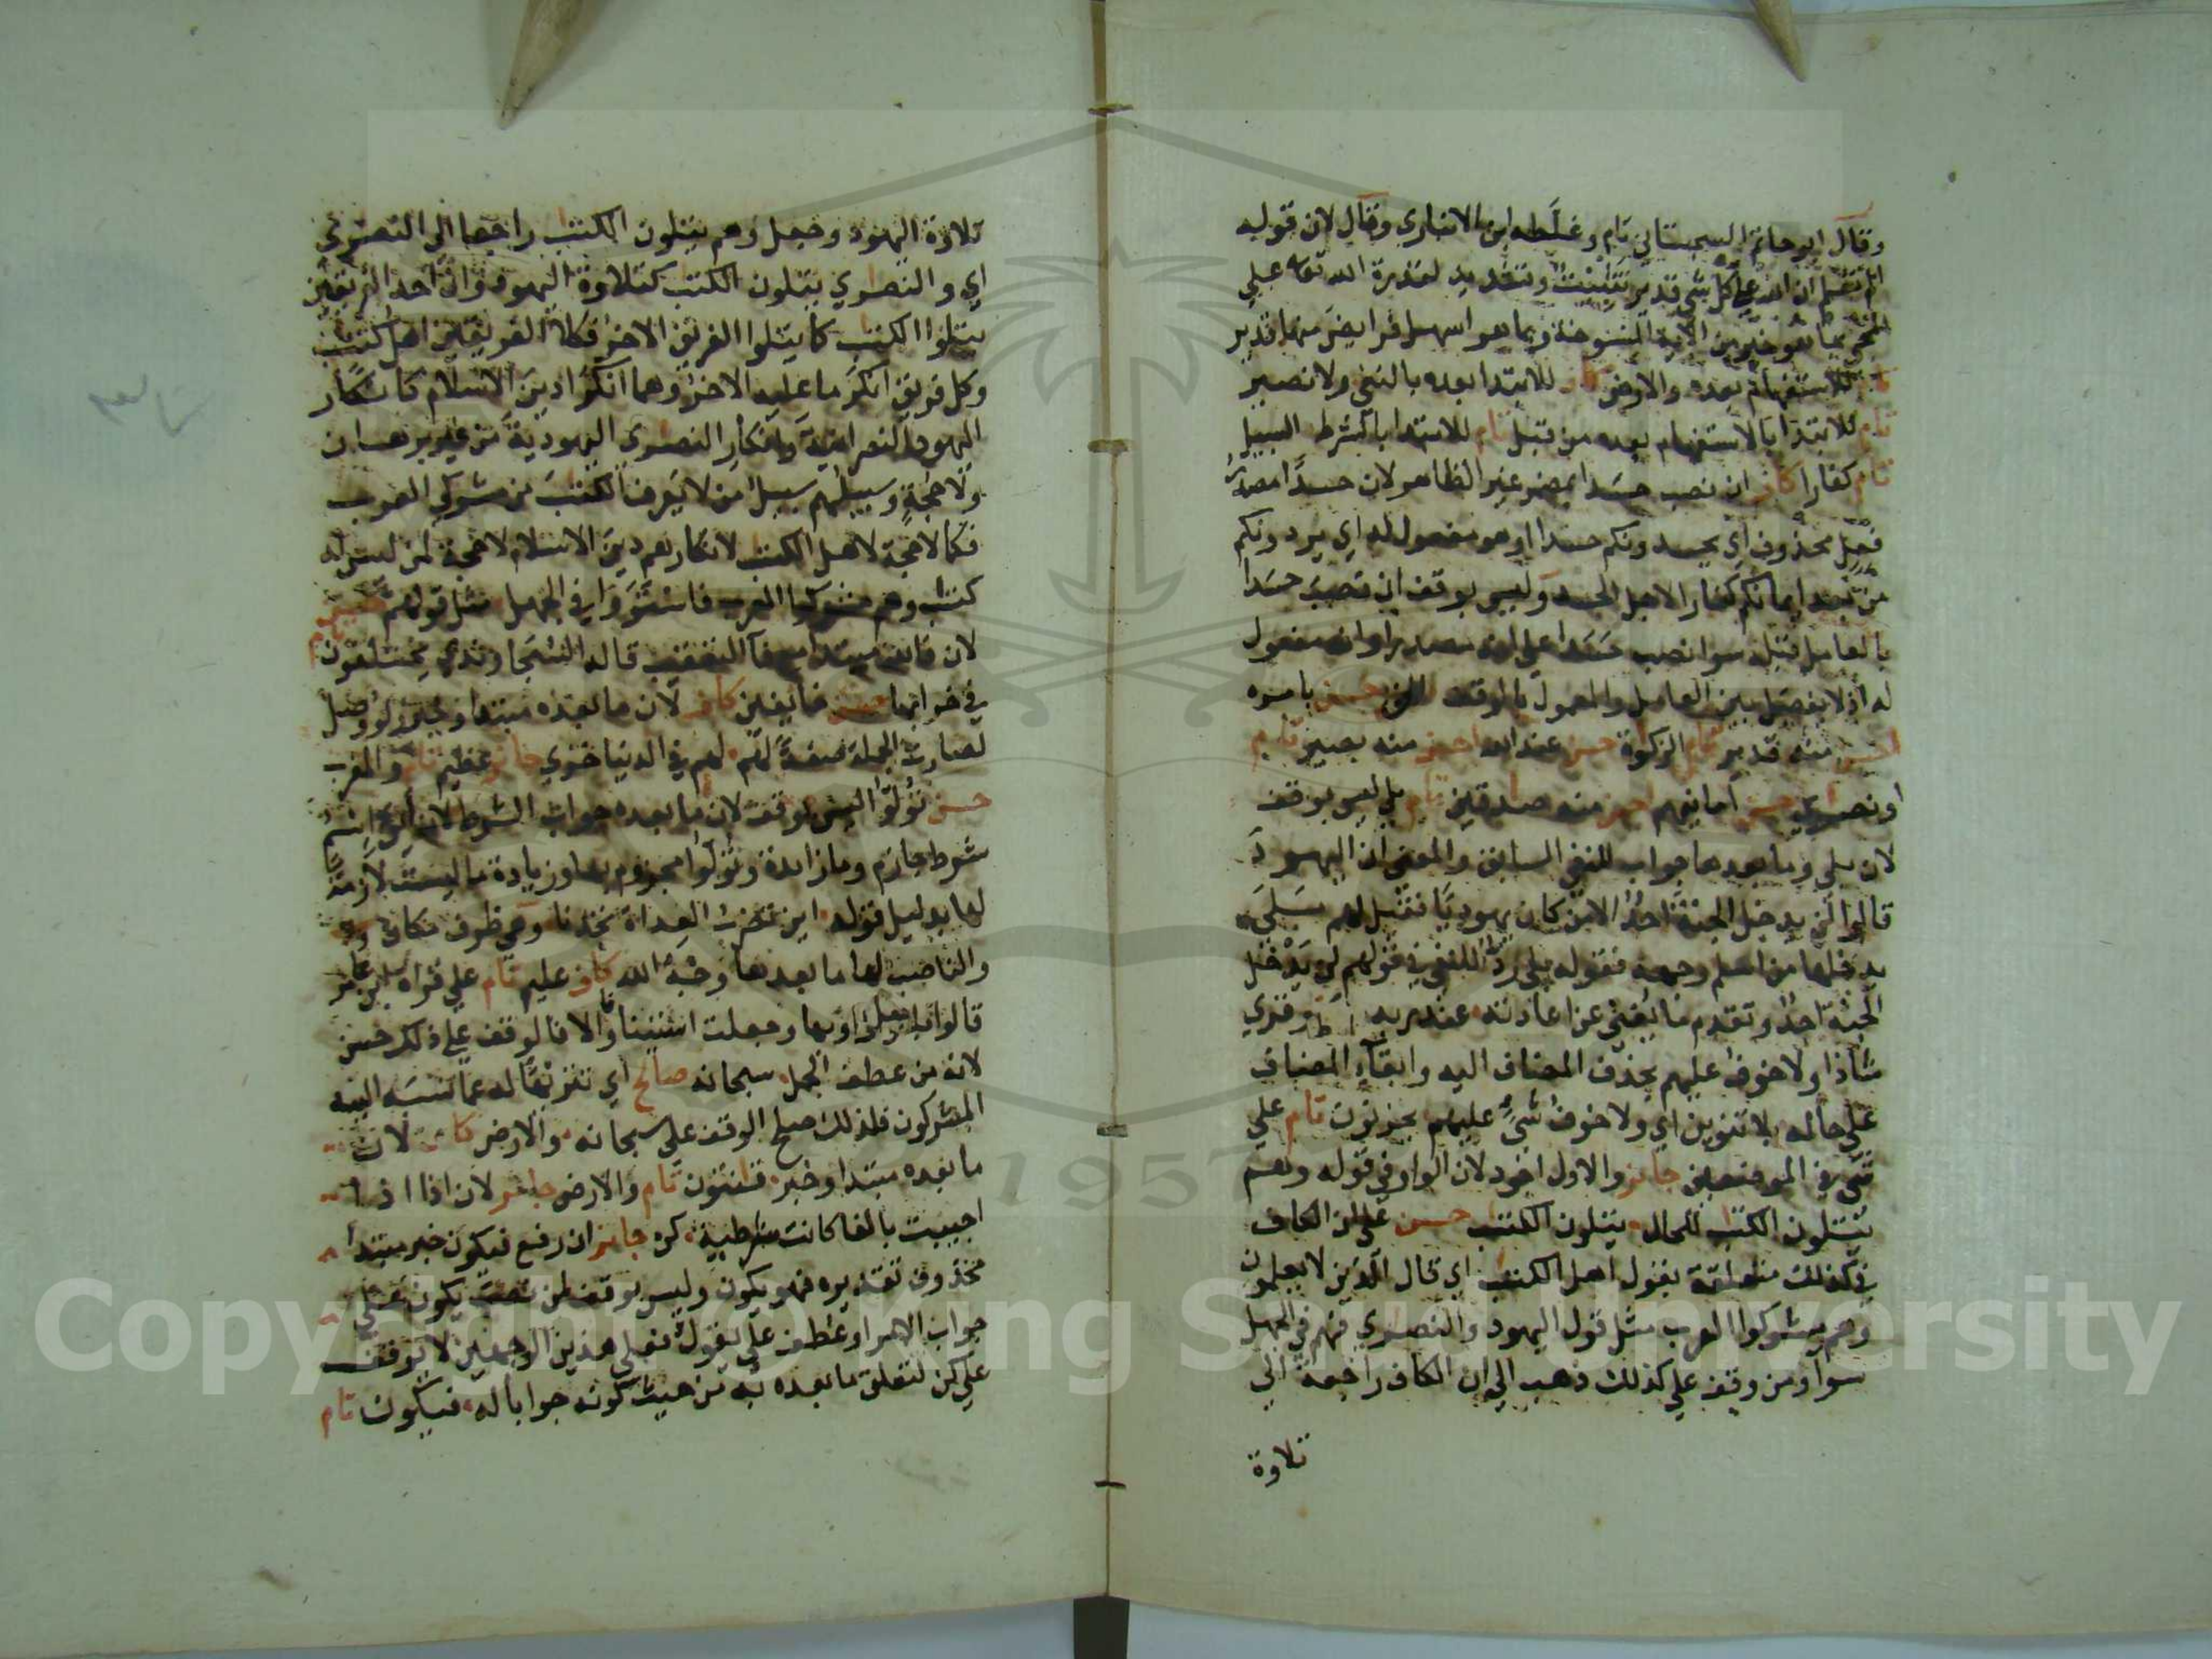 وقال ابو حاتم السجستاني تام وغلّطه ابن الانباري وقال لان قوله
الم تعلم ان الله على كل شي قدير تثبيت وتسديد لقدرة الله تع على
المجي بما هو خير من الاية المنسوخة وبما هو اسهل فرايض منها قدير
تام للاستفهام بعده والارض كاف للابتدا بعده بالنفي ولا نصير
تام للابتدا بالاستفهام بعده من قبل تام للابتدا بالشرط السبيل
تام كفارا كاف ان نصب حسدا بمضمر غير الظاهر لان حسدا مصدر
فعل محذوف اي يحسدونكم حسدا او هو مفعول له اي يردونكم
من بعد ايمانكم كفارا لاجل الحسد وليس بوقف ان نصب حسدا
بالعامل قبله سوا نصب حسدا على انه مصدر او انه مفعول
له اذ لا يفصل بين العامل والمعمول بالوقف الحق حسن بامره
احسن منه قدير تام الزكوة حسن عند الله احسن منه بصير تام
او نصرى حسن امانيهم احسن منه صدقين تام بلى ليس بوقف
لان بلى وما بعدها جواب للنفي السابق والمعنى ان اليهود
قالوا لن يدخل الجنة احد الا من كان يهوديا فقيل لهم بلى
يدخلها من اسلم وجهه فقوله بلى ردّ للنفي في قولهم لن يدخل
الجنة احد وتقدم ما يغني عن اعادته عند ربه ط وقري
شاذا ولا خوف عليهم بحذف المضاف اليه وابقاء المضاف
على حاله بلا تنوين اي ولا خوف شي عليهم يحزنون تام على
شي في الموضعين جايز والاول اجود لان الواو في قوله وهم
يتلون الكتب للحال يتلون الكتب حسن على ان الكاف
في كذلك متعلقة بقول اهل الكتب اي قال الذين لا يعلمون
وهم مشركوا العرب مثل قول اليهود والنصرى فهم في الجهل
سوا ومن وقف على كذلك ذهب الى ان الكاف راجعة الى
تلاوة
تلاوة اليهود وجعل وهم يتلون الكتب راجعا الى النصرى
اي والنصرى يتلون الكتب كتلاوة اليهود وان احد الفريقين
يتلوا الكتب كما يتلوا الفريق الاخر فكلا الفريقين اهل كتب
وكل فريق انكر ما عليه الاخر وهما انكرا دين الاسلام كانكار
اليهود النصرانية وانكار النصرى اليهودية من غير برهان
ولا حجة وسبيلهم سبيل من لا يعرف الكتب من مشركي العرب
فكما لا حجة لاهل الكتب لانكارهم دين الاسلام لا حجة لمن ليس له
كتب وهم مشركوا العرب فاستووا في الجهل مثل قولهم
لان فالله مبتدا مع فا التعقيب قاله السجاوندي يختلفون تام
في خرابها حسن خايفين كاف لان ما بعده مبتدا وخبر ولو وصل
لصارت الجملة صفة لهم لهم في الدنيا خزي جايز عظيم تام والمغرب
حسن تولوا ليس بوقف لان ما بعده جواب الشرط لان اين اسم
شرط جازم وما زايدة وتولوا مجزوم بها وزيادة ما ليست لازمة
لها بدليل قوله اين تضرب العداة تجدنا وهي ظرف مكان
والناصب لها ما بعدها وجه الله كاف عليم تام على قراة ابن عامر
قالوا بلا واو او بها وجعلت استينافا والا فالوقف على ذلك حسن
لانه من عطف الجمل سبحانه صالح اي تنزيها له عما نسبه اليه
المشركون فلذلك صلح الوقف على سبحانه والارض كاف لان
ما بعده مبتدا وخبر قنتون تام والارض جايز لان اذا اذا
اجيبت بالفا كانت شرطية كن جايز ان رفع فيكون خبر مبتدا
محذوف تقديره فهو يكون وليس بوقف لمن نصب يكون على
جواب الامر او عطف على يقول فعلى هذين الوجهين لا يوقف
على كن لتعلق ما بعده به من حيث كونه جوابا له فيكون تام
Copyright © King Saud University
1957